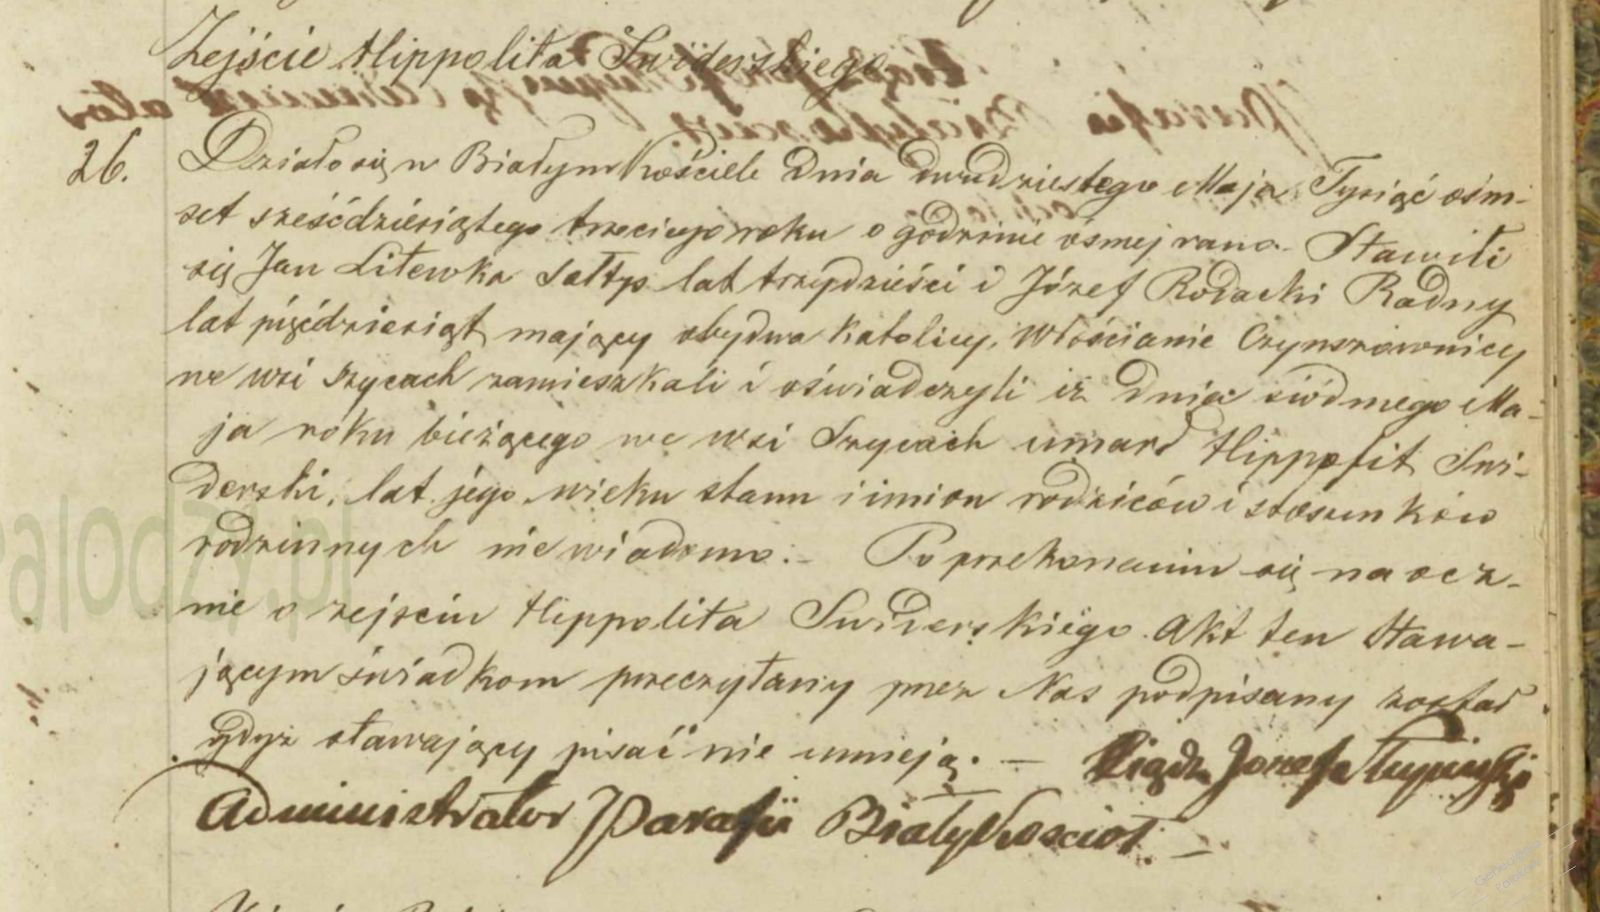 Zejście Hippolita Swiderskiego
26. Działo się w Białym Kościele dnia dwudziestego Maja Tysiąć ośm-
set sześćdziesiątego trzeciego roku o godzinie ósmej rano. Stawili
się Jan Litewka Sołtys lat trzydzieści i Józef Rodacki Radny
lat pięćdziesiąt mający obydwa Katolicy, Włościanie Czynszownicy
we wsi Szycach zamieszkali i oświadczyli iż dnia siódmego Ma-
ja roku bieżącego we wsi Szycach umarł Hippolit Swi-
derski, lat jego wieku stanu i imion rodziców i stosunków
rodzinnych niewiadomo.- Po przekonaniu się naocz-
nie o zejściu Hippolita Swiderskiego Akt ten stawa-
jącym świadkom przeczytany przez Nas podpisany został
gdyż stawający pisać nie umieją. — Xiądz Jozef
Administrator Parafii Biały Kościoł. —
alodzy.pl